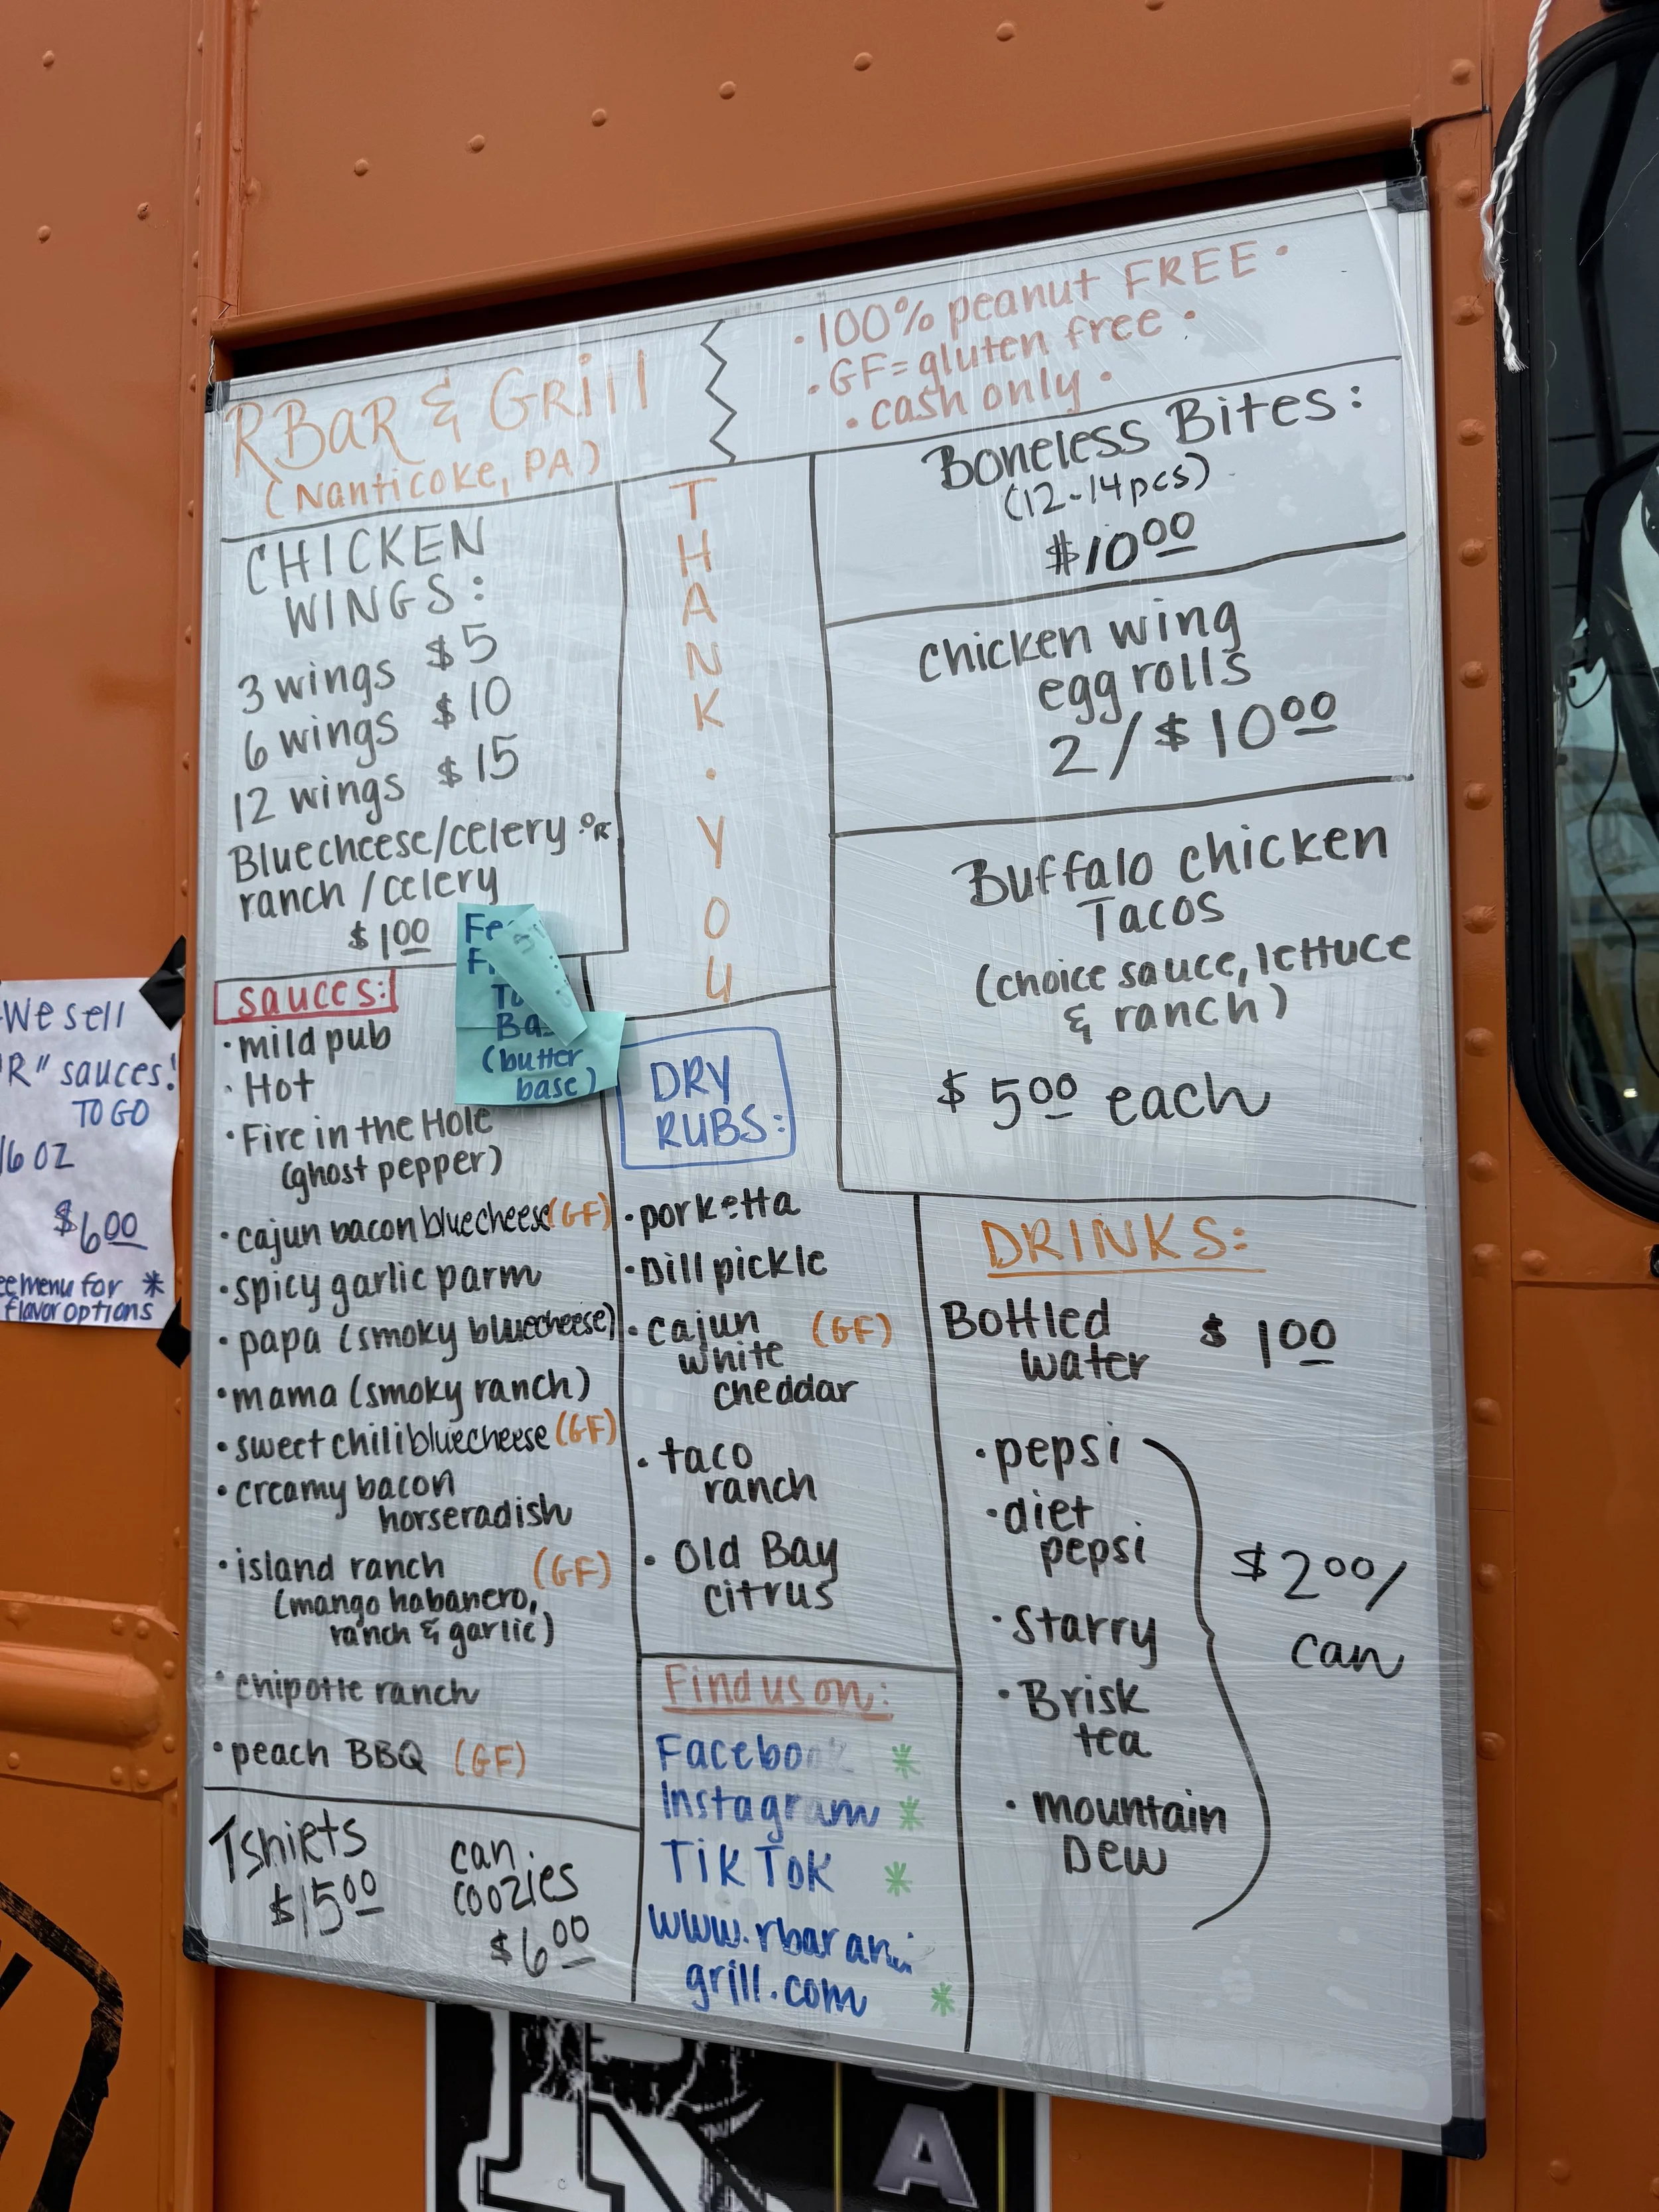 RBAR & GRill
(Nanticoke, PA)
• 100% peanut FREE •
• GF = gluten free •
• cash only •
CHICKEN
WINGS:
3 wings $5
6 wings $10
12 wings $15
Bluecheese/celery OR
ranch/celery
$1.00
THANK • YOU
Boneless Bites:
(12-14pcs)
$10.00
chicken wing
egg rolls
2/$10.00
Buffalo chicken
Tacos
(choice sauce, lettuce
& ranch)
$5.00 each
(butter
base)
sauces:
• mild pub
• Hot
• Fire in the Hole
(ghost pepper)
• cajun bacon bluecheese (GF)
• spicy garlic parm
• papa (smoky bluecheese)
• mama (smoky ranch)
• sweet chili bluecheese (GF)
• creamy bacon
horseradish
• island ranch (GF)
(mango habanero,
ranch & garlic)
• chipotte ranch
• peach BBQ (GF)
DRY
RUBS:
• porketta
• Dill pickle
• cajun (GF)
white
cheddar
• taco
ranch
• Old Bay
citrus
DRINKS:
Bottled $1.00
water
• pepsi
• diet
pepsi
• Starry
• Brisk
tea
• mountain
Dew
$2.00/
can
Find us on:
Facebook *
Instagram *
TikTok *
www.rbarand
grill.com *
Tshirts
$15.00
can
coozies
$6.00
We sell
"R" sauces!
TO GO
16 OZ
$6.00
menu for *
flavor options
R
A